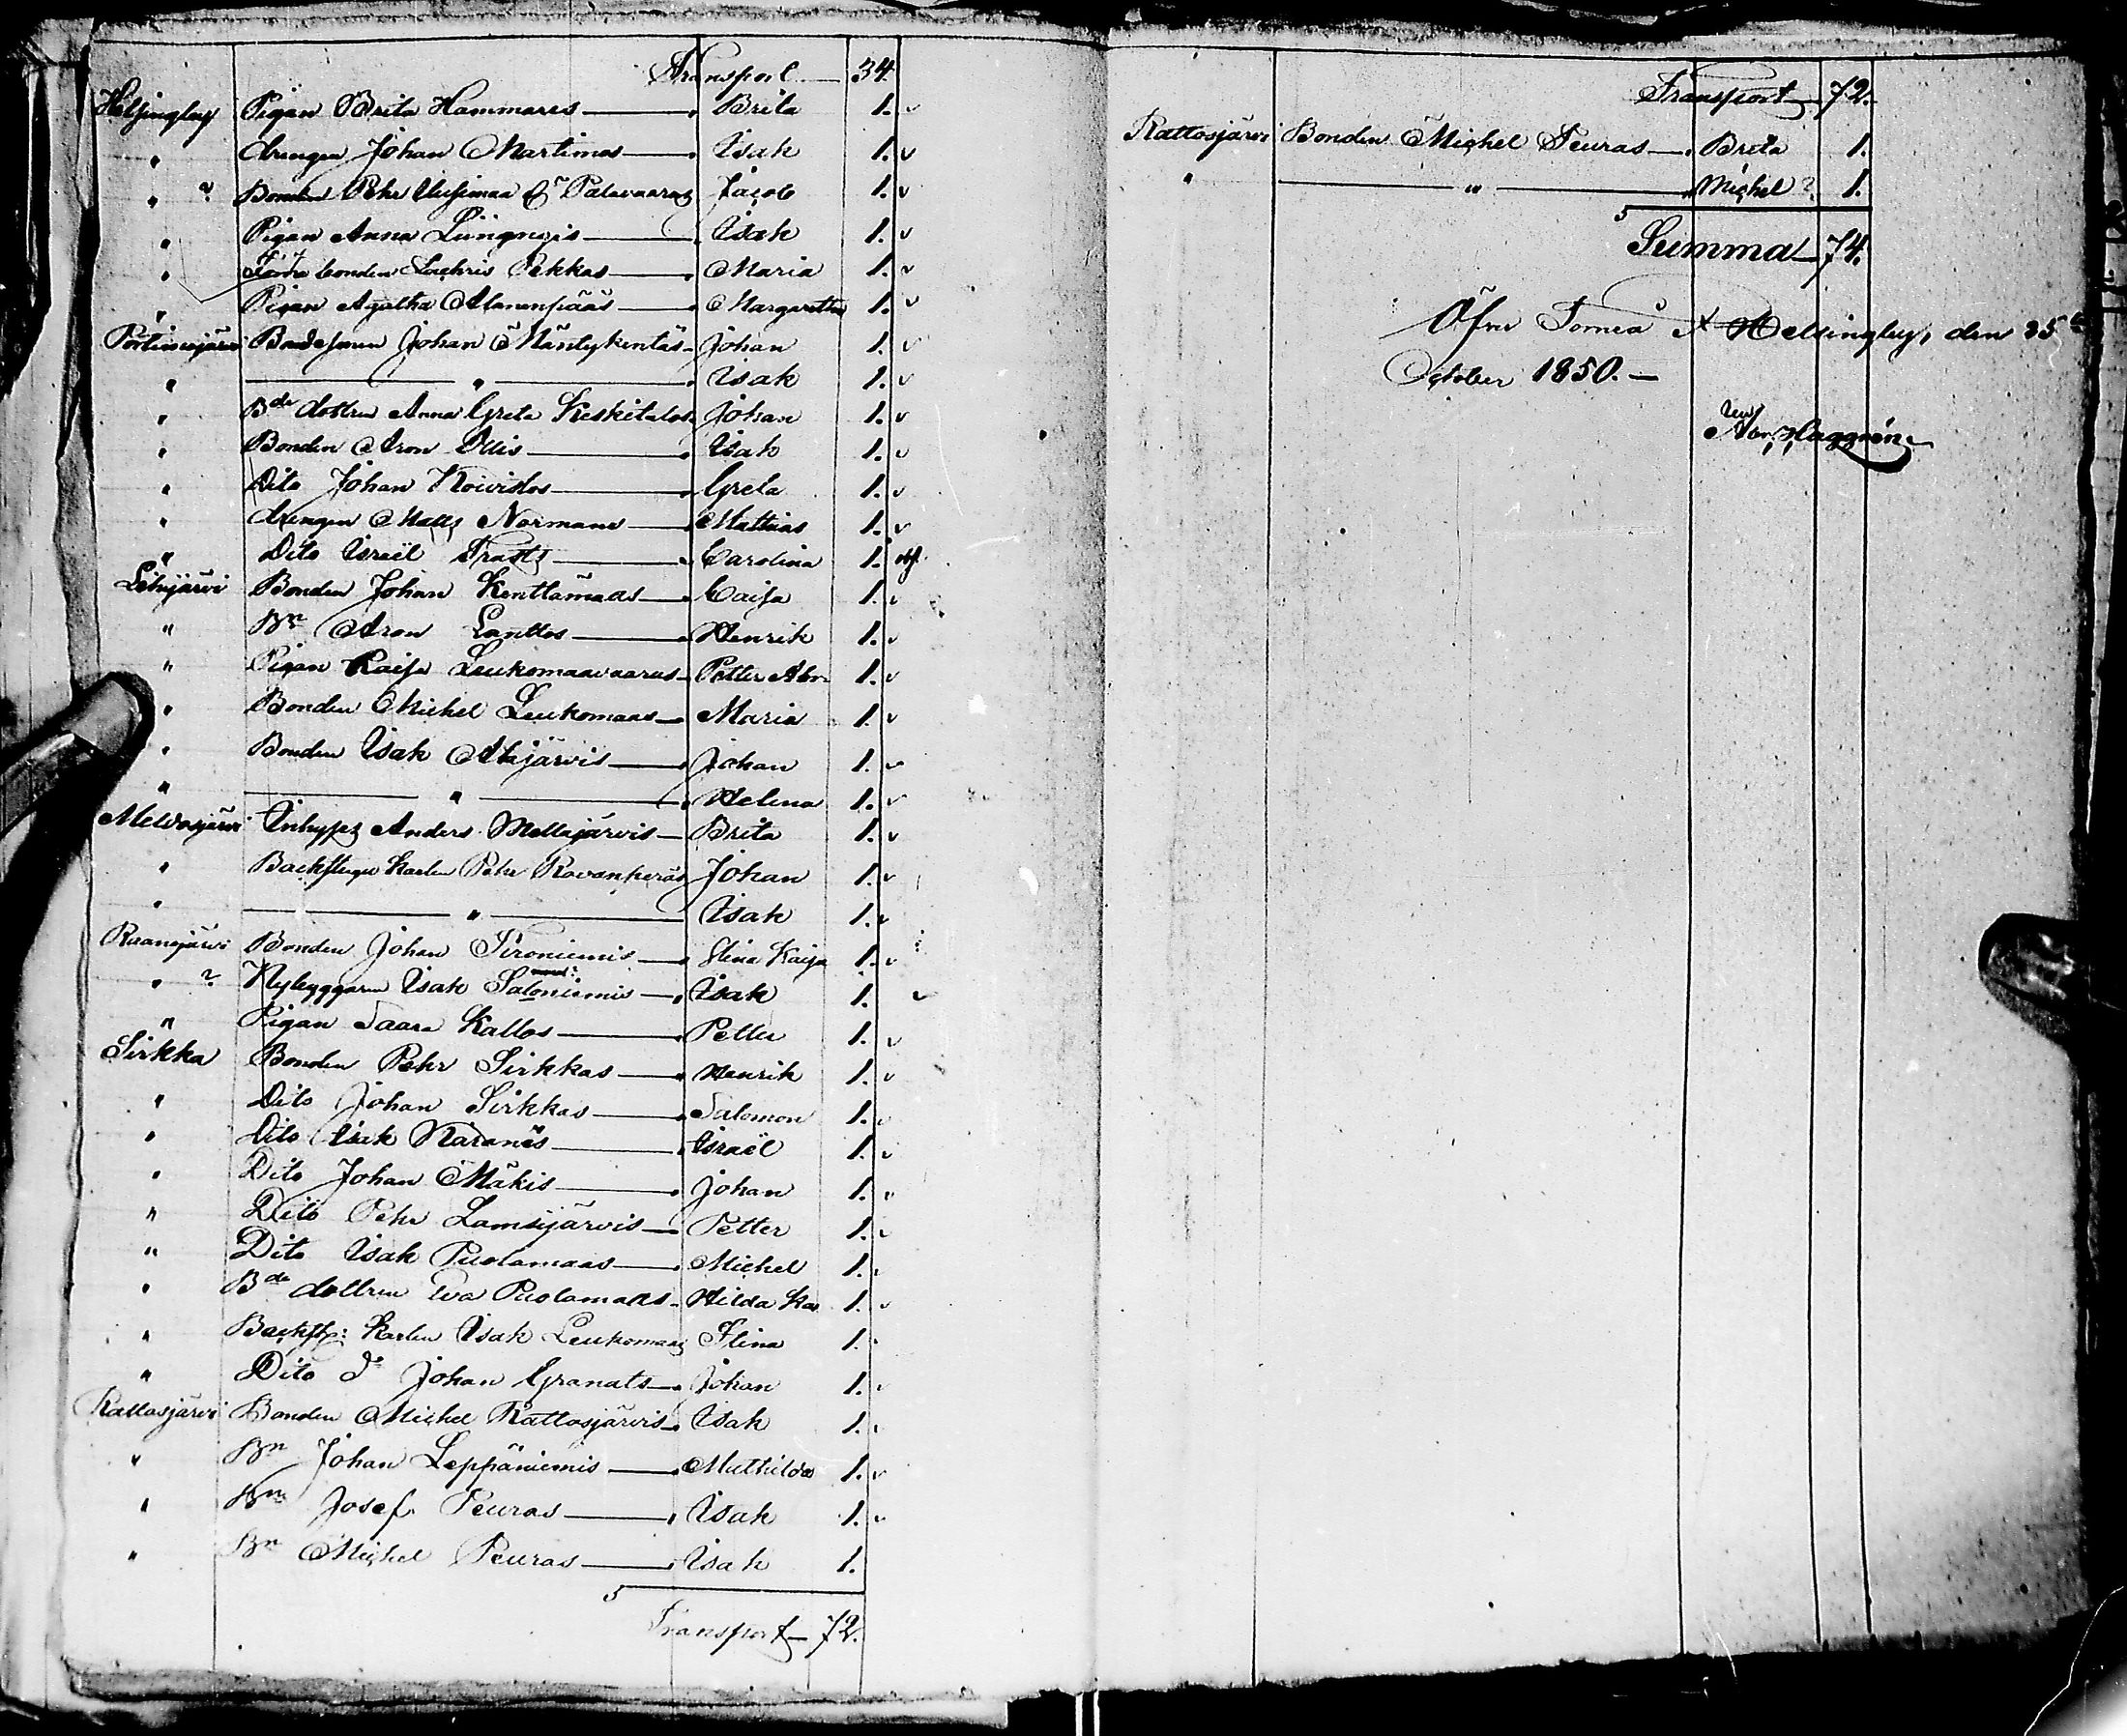 Transport 34.
Helsingby Pigan Brita Hammares Brita 1. v
" drengen Johan Martimos Isak 1. v
" ? Bonden Pehr Uusimaa Jacob 1. v
" Pigan Anna Isak 1. v
" bonden Zachris Pekkas Maria 1. v
" Pigan Agatha Alanenpääs Margaretha 1. v
Portimojärvi Johan Mäntykentäs Johan 1. v
" " Isak 1. v
" Bde dottren Anna Greta Keskitalos Johan 1. v
" Bonden Aron Ollis Isak 1. v
" Dito Johan Koivistos Greta 1. v
" drengen Matts Normans Mathias 1. v
" Dito Israël Trasts Carolina 1.
Lohijärvi Bonden Johan Kenttämaas Caisa 1. v
" Bn Aron Lanttos Henrik 1. v
" Pigan Kaisa Leukomaavaaras Petter Abr. 1. v
" Bonden Michel Leukomaas Maria 1. v
" Bonden Isak Alajärvis Johan 1. v
" " Helina 1. v
Meldosjärvi Inhyses Anders Mellajärvis Brita 1. v
" Backstugu karlen Pehr Rovanperäs Johan 1. v
" " Isak 1. v
Ruanojärvi Bonden Johan Tironiemis Stina Kaisa 1. v
" ? Nybyggaren Isak Saloniemis Isak 1. v
" Pigan Saara Kallos Petter 1. v
Sirkka Bonden Pehr Sirkkas Henrik 1. v
" Dito Johan Sirkkas Salomon 1. v
" Dito Isak Naranës Israël 1. v
" Dito Johan Mäkis Johan 1. v
" Dito Pehr Lamsijärvis Petter 1. v
" Dito Isak Puolamaas Michel 1. v
" Bde dottren Eva Puolamaas Hilda Kar. 1. v
" Backst: karlen Isak Leukomaas Stina 1.
" Dito Do Johan Granats Johan 1. v
Rattosjärvi Bonden Michel Rattosjärvis Isak 1. v
" Bn Johan Leppäniemis Mathilda 1. v
" Bn Josef Peuras Isak 1. v
" Bn Michel Peuras Isak 1.
Transport 72.
Transport 72.
Rattosjärvi Bonden Michel Peuras Brita 1.
" " Michel ? 1.
Summa 74.
Öfver Tornea & Helsingby, den 25
October 1850.
Haggrén